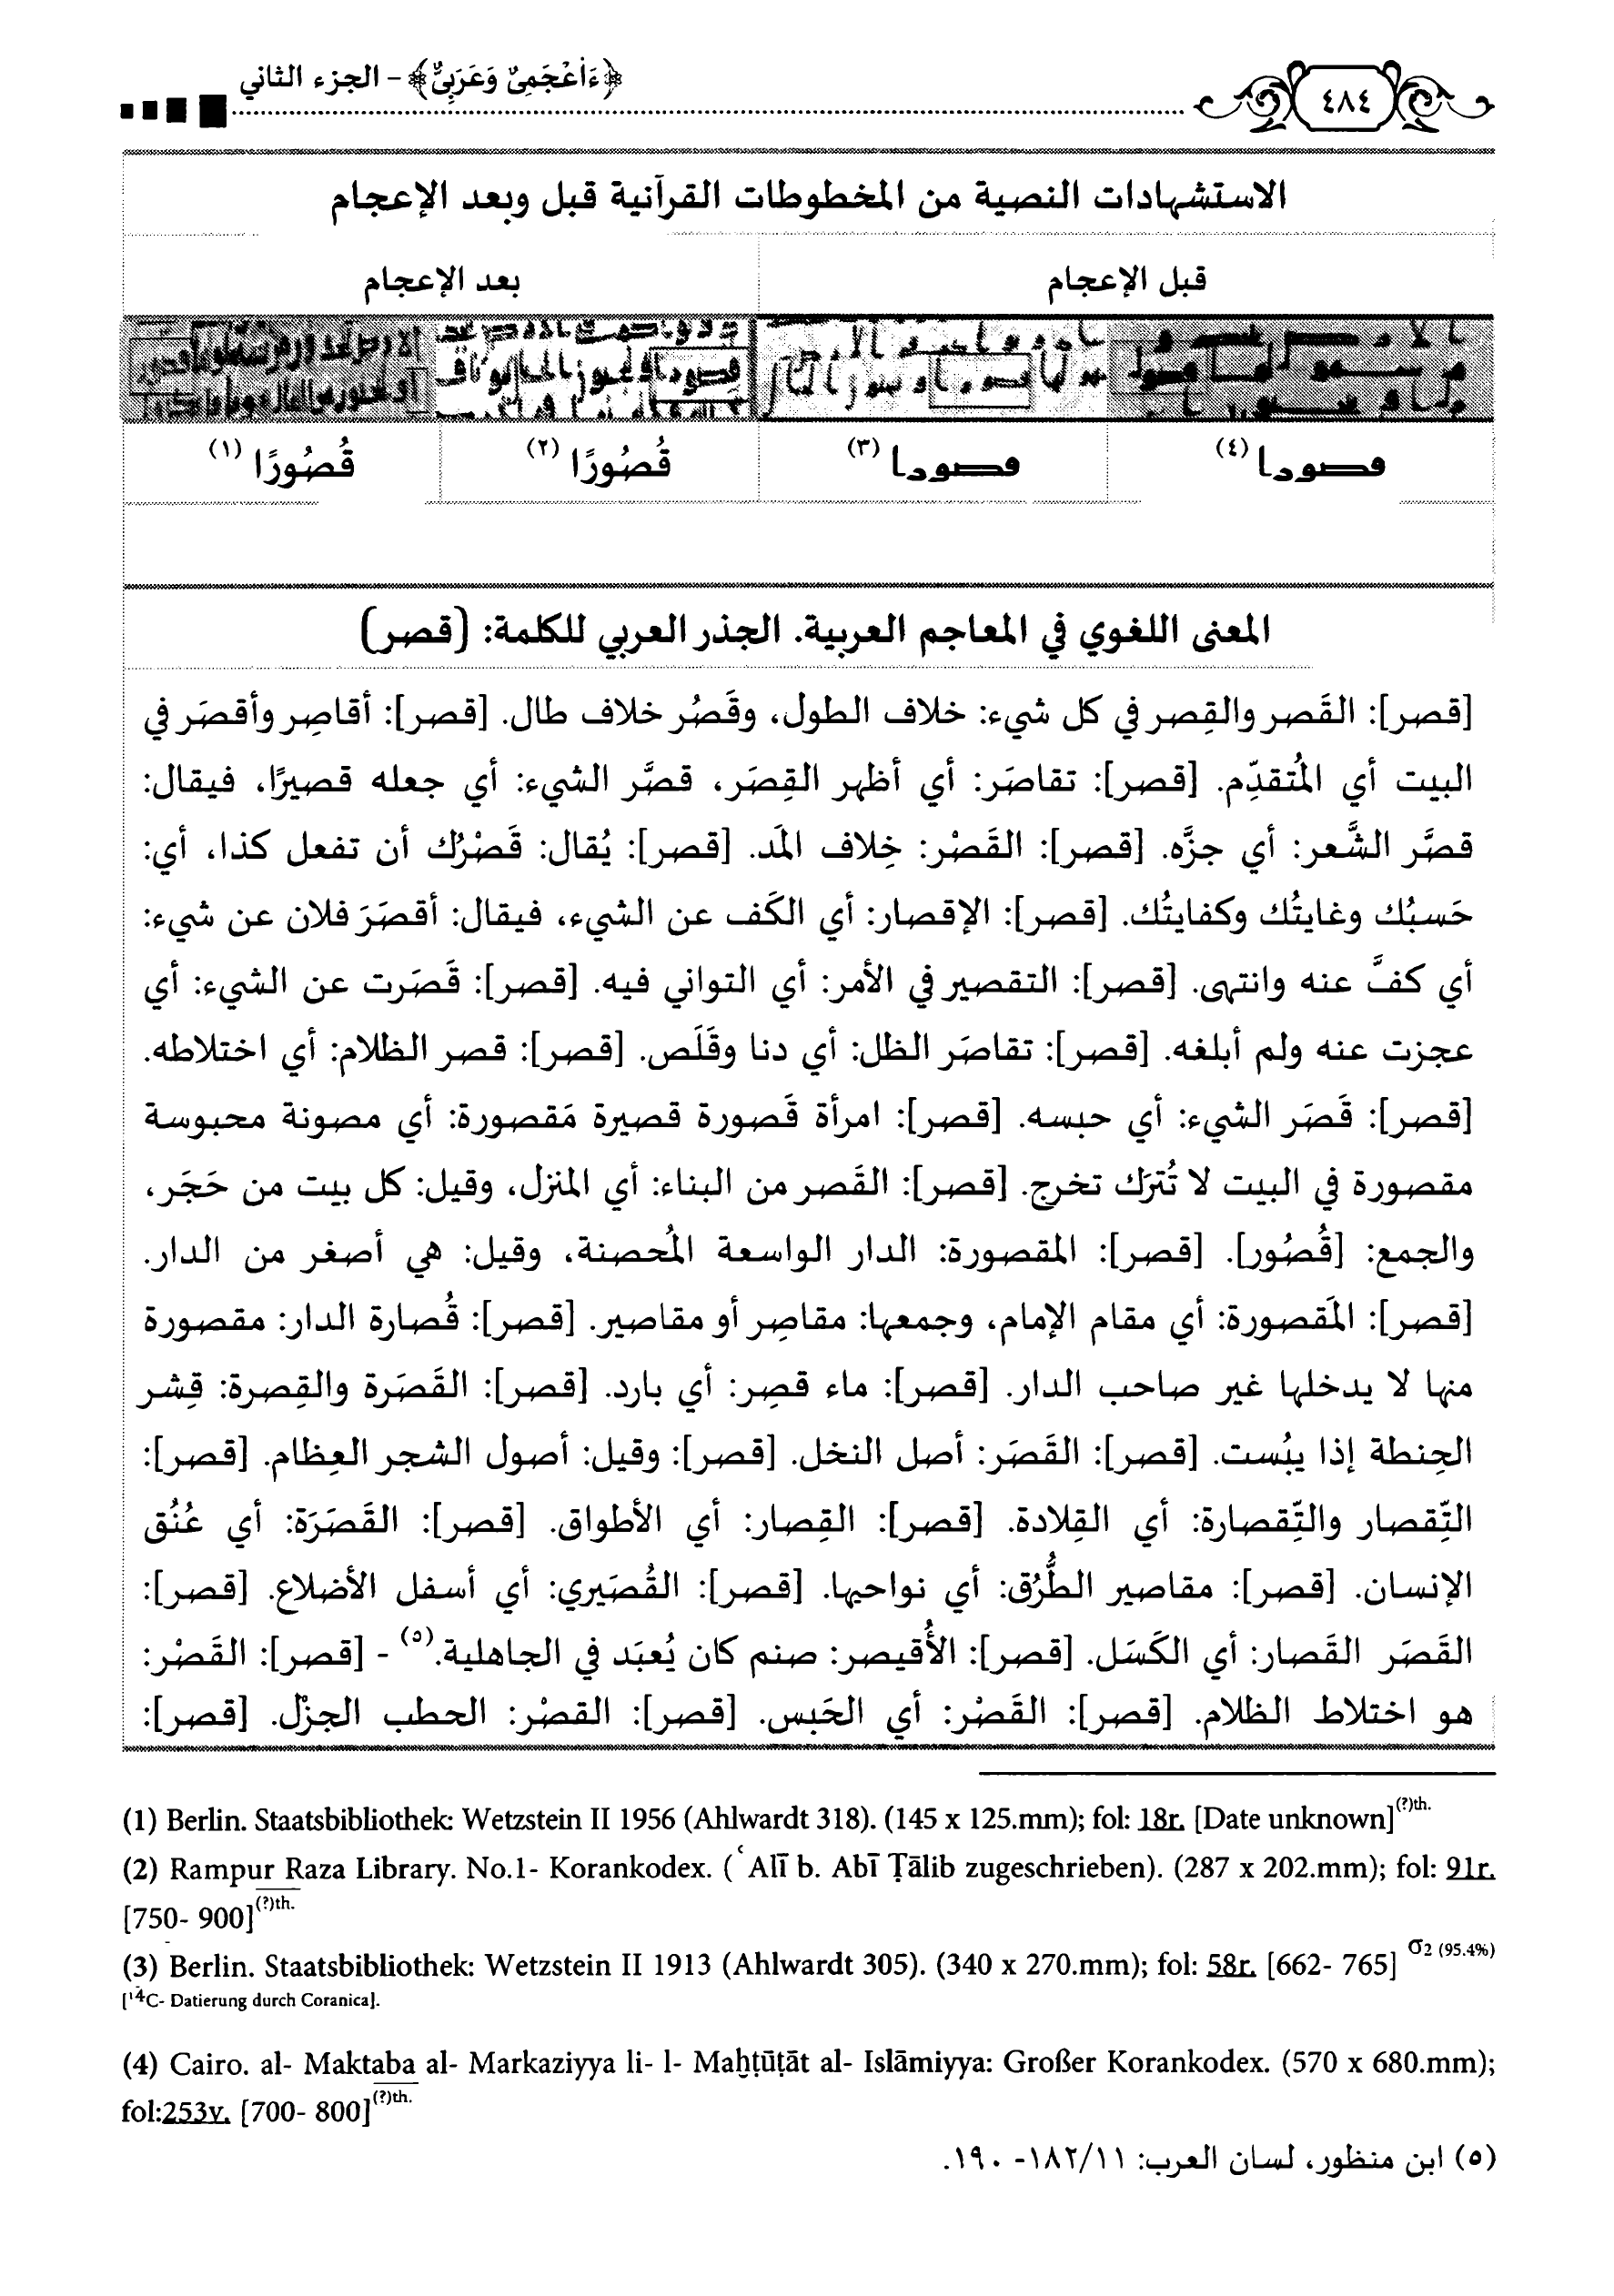 ٤٨٤
﴿ءَاْعْجَمِىٌّ وَعَرَبِىٌّ﴾ - الجزء الثاني
الاستشهادات النصية من المخطوطات القرآنية قبل وبعد الإعجام
قبل الإعجام
بعد الإعجام
ڡصورا (٤)
ڡصورا (٣)
قُصُورًا (٢)
قُصُورًا (١)
المعنى اللغوي في المعاجم العربية. الجذر العربي للكلمة: (قصر)
[قصر]: القَصر والقِصر في كل شيء: خلاف الطول، وقَصُر خلاف طال. [قصر]: أقاصِر وأقصَر في
البيت أي المُتقدِّم. [قصر]: تقاصَر: أي أظهر القِصَر، قصَّر الشيء: أي جعله قصيرًا، فيقال:
قصَّر الشَّعر: أي جزَّه. [قصر]: القَصْر: خِلاف المَد. [قصر]: يُقال: قَصْرُك أن تفعل كذا، أي:
حَسبُك وغايتُك وكفايتُك. [قصر]: الإقصار: أي الكَف عن الشيء، فيقال: أقصَرَ فلان عن شيء:
أي كفَّ عنه وانتهى. [قصر]: التقصير في الأمر: أي التواني فيه. [قصر]: قَصَرت عن الشيء: أي
عجزت عنه ولم أبلغه. [قصر]: تقاصَر الظل: أي دنا وقَلَص. [قصر]: قصر الظلام: أي اختلاطه.
[قصر]: قَصَر الشيء: أي حبسه. [قصر]: امرأة قَصورة قصيرة مَقصورة: أي مصونة محبوسة
مقصورة في البيت لا تُترَك تخرج. [قصر]: القَصر من البناء: أي المنزل، وقيل: كل بيت من حَجَر،
والجمع: [قُصُور]. [قصر]: المقصورة: الدار الواسعة المُحصنة، وقيل: هي أصغر من الدار.
[قصر]: المَقصورة: أي مقام الإمام، وجمعها: مقاصِر أو مقاصير. [قصر]: قُصارة الدار: مقصورة
منها لا يدخلها غير صاحب الدار. [قصر]: ماء قصِر: أي بارد. [قصر]: القَصَرة والقِصرة: قِشر
الحِنطة إذا يبُست. [قصر]: القَصَر: أصل النخل. [قصر]: وقيل: أصول الشجر العِظام. [قصر]:
التِّقصار والتِّقصارة: أي القِلادة. [قصر]: القِصار: أي الأطواق. [قصر]: القَصَرَة: أي عُنُق
الإنسان. [قصر]: مقاصير الطُّرُق: أي نواحيها. [قصر]: القُصَيري: أي أسفل الأضلاع. [قصر]:
القَصَر القَصار: أي الكَسَل. [قصر]: الأُقيصر: صنم كان يُعبَد في الجاهلية.(٥) - [قصر]: القَصْر:
هو اختلاط الظلام. [قصر]: القَصْر: أي الحَبس. [قصر]: القصْر: الحطب الجزْل. [قصر]:
(1) Berlin. Staatsbibliothek: Wetzstein II 1956 (Ahlwardt 318). (145 x 125.mm); fol: 18r. [Date unknown](?)th.
(2) Rampur Raza Library. No.1- Korankodex. (ʿAlī b. Abī Ṭālib zugeschrieben). (287 x 202.mm); fol: 91r.
[750- 900](?)th.
(3) Berlin. Staatsbibliothek: Wetzstein II 1913 (Ahlwardt 305). (340 x 270.mm); fol: 58r. [662- 765] σ2 (95.4%)
[14C- Datierung durch Coranica].
(4) Cairo. al- Maktaba al- Markaziyya li- l- Maḫṭūṭāt al- Islāmiyya: Großer Korankodex. (570 x 680.mm);
fol:253v. [700- 800](?)th.
(٥) ابن منظور، لسان العرب: ١٨٢/١١- ١٩٠.